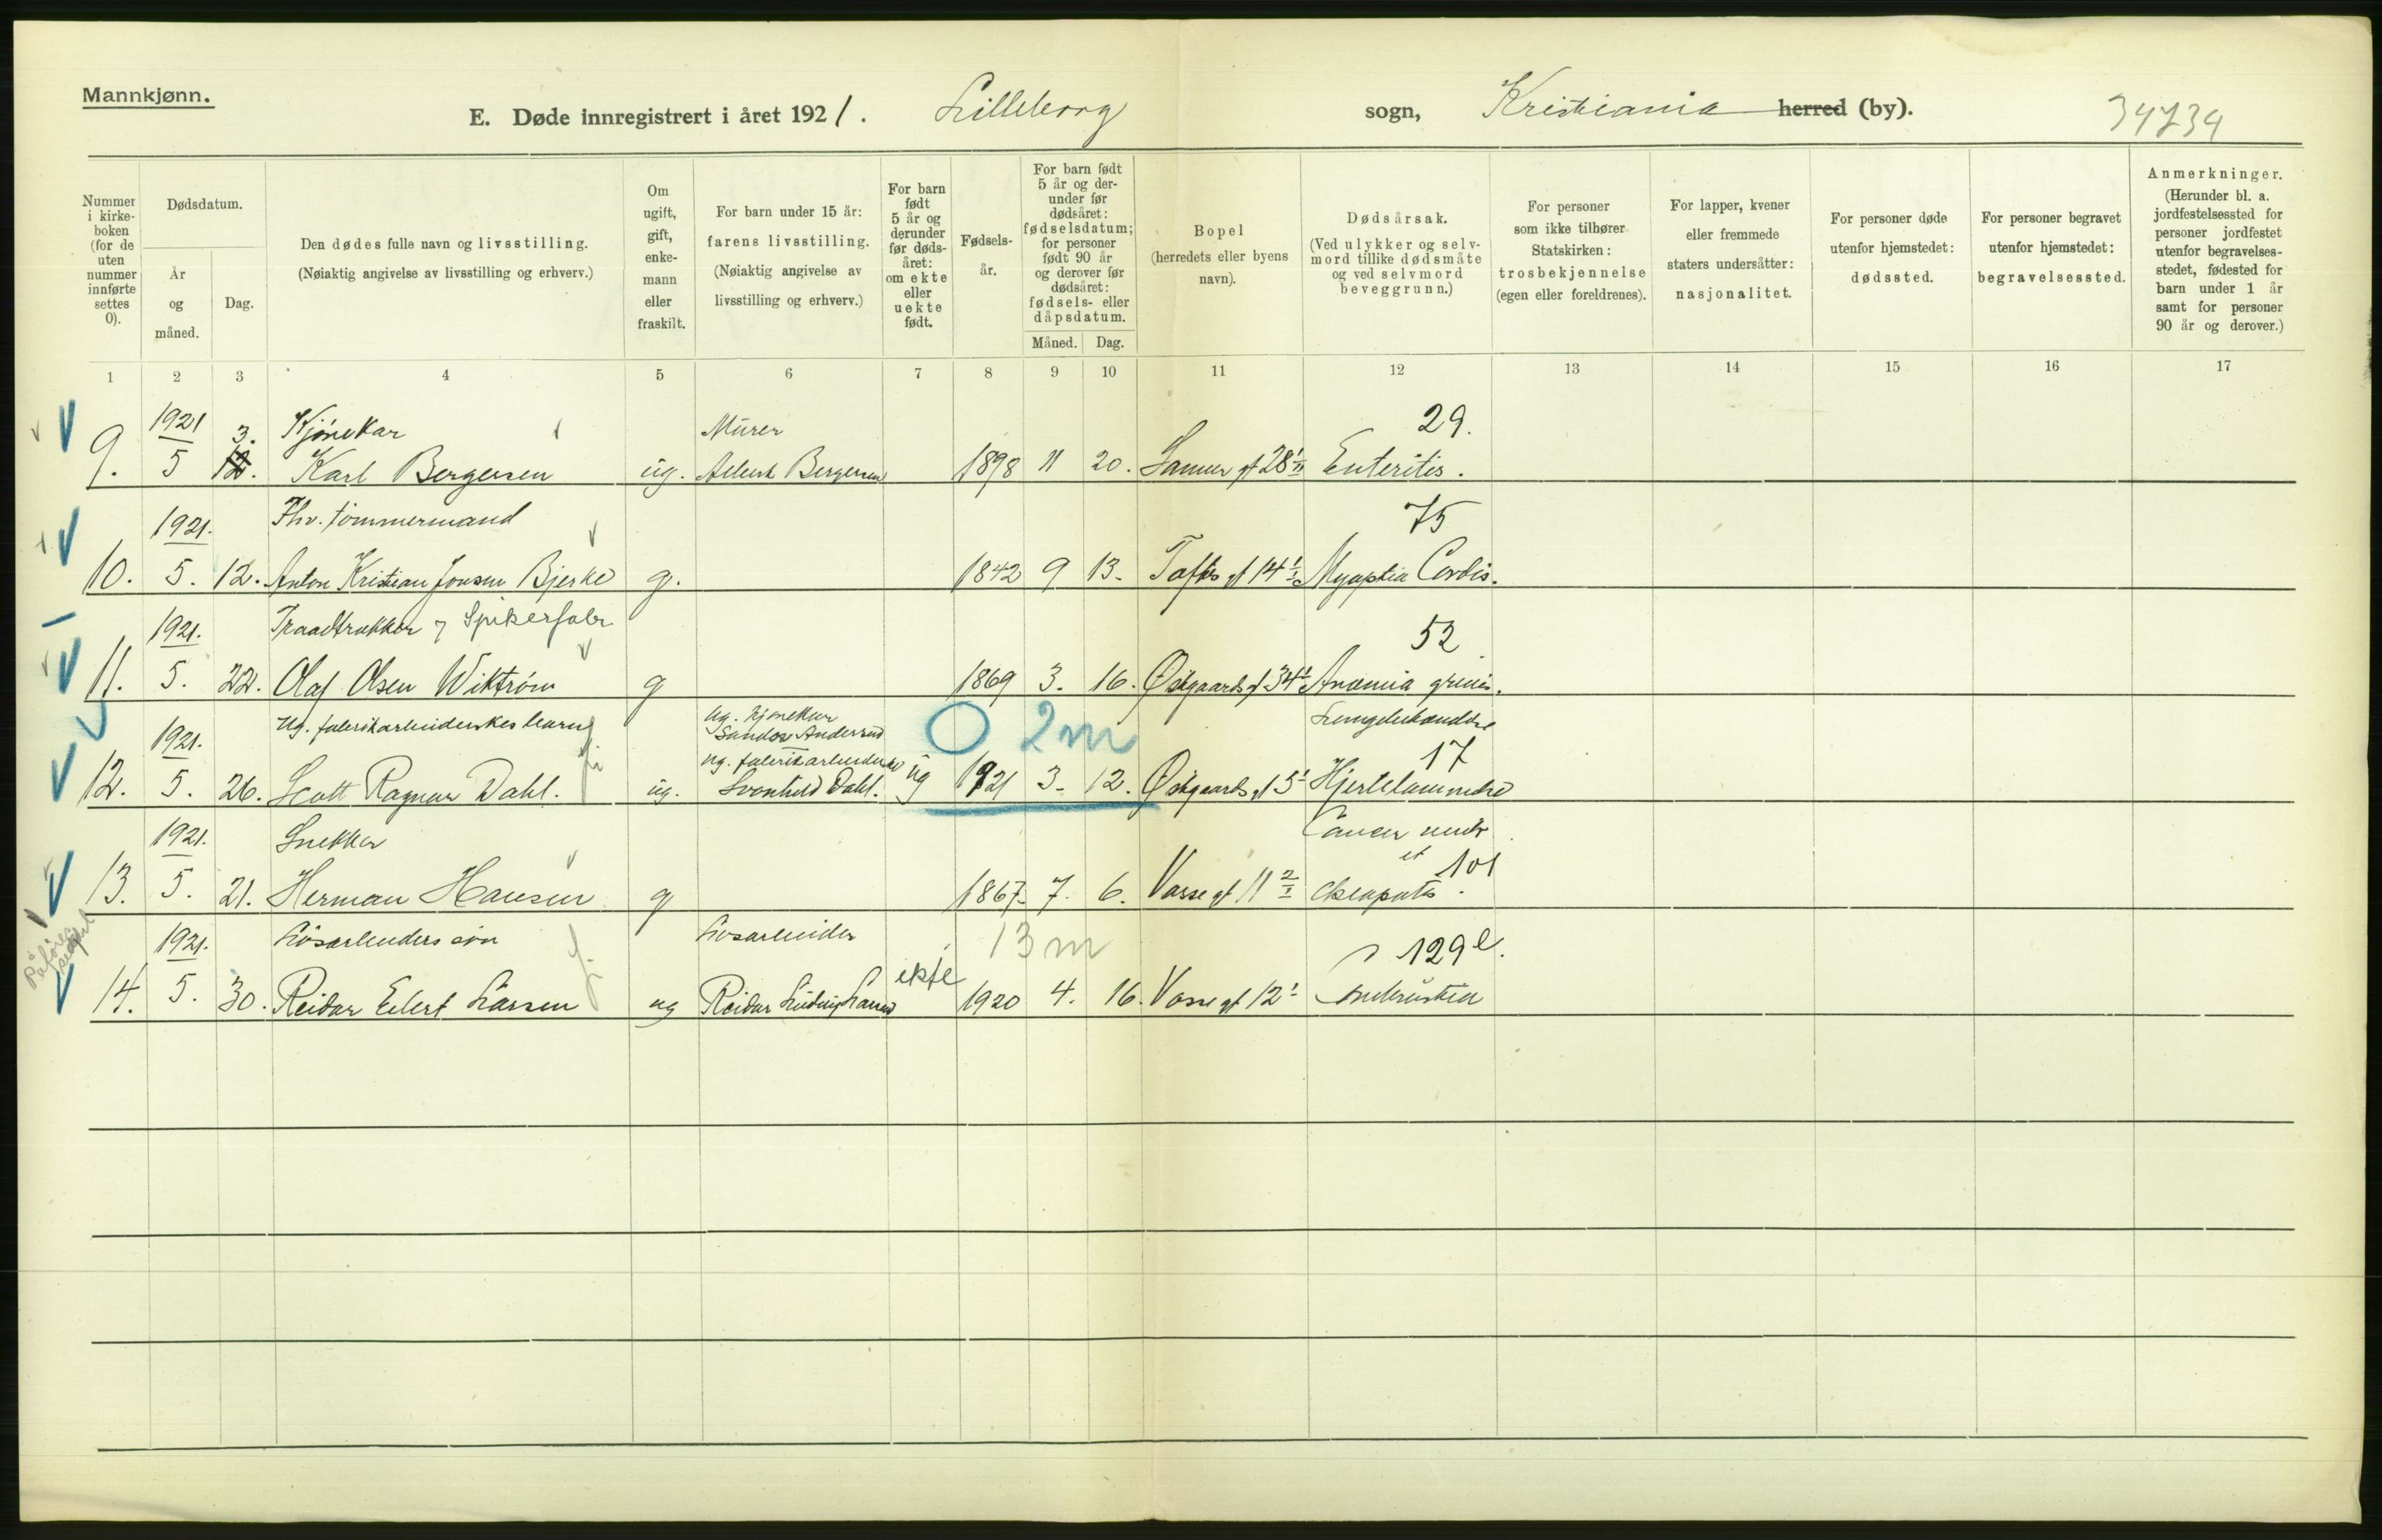 Mannkjønn.
E. Døde innregistrert i året 1921. Lilleborg sogn, Kristiania herred (by). 34734
Nummer i kirkeboken (for de uten nummer innførte settes 0).
Dødsdatum.
År og måned.
Dag.
Den dødes fulle navn og livsstilling.
(Nøiaktig angivelse av livsstilling og erhverv.)
Om ugift, gift, enkemann eller fraskilt.
For barn under 15 år: farens livsstilling.
(Nøiaktig angivelse av livsstilling og erhverv.)
For barn født 5 år og derunder før dødsåret: om ekte eller uekte født.
Fødselsår.
For barn født 5 år og derunder før dødsåret: fødselsdatum; for personer født 90 år og derover før dødsåret: fødsels- eller dåpsdatum.
Måned. Dag.
Bopel
(herredets eller byens navn).
Dødsårsak.
(Ved ulykker og selvmord tillike dødsmåte og ved selvmord beveggrunn.)
For personer som ikke tilhører Statskirken: trosbekjennelse (egen eller foreldrenes).
For lapper, kvener eller fremmede staters undersåtter: nasjonalitet.
For personer døde utenfor hjemstedet: dødssted.
For personer begravet utenfor hjemstedet: begravelsessted.
Anmerkninger.
(Herunder bl. a. jordfestelsessted for personer jordfestet utenfor begravelsesstedet, fødested for barn under 1 år samt for personer 90 år og derover.)
1 2 3 4 5 6 7 8 9 10 11 12 13 14 15 16 17
1921 3. Kjørekar Murer 29.
9. 5 12. Karl Bergersen ug. Albert Bergersen 1898 11 20. 28 Enteritis.
1921. Fhv. tømmermand 75
10. 5. 12. Anton Kristian Jonsen Bjerke g. 1842 9 13. Toftes gt 14 Cordis.
1921. Traadtrækker Spikerfabr. 52
11. 5. 22. Olaf Olsen Wiktrøm g 1869 3. 16. Østgaards gt 34 Anæmia
1921. Ug. fabrikarbeiderskes barn Ug. kjørekar Sandor Anderssen 2m Lungebetændelse
ug. fabrikarbeiderske 17
12. 5. 26. Scott Ragnar Dahl. ug. Svanhild Dahl. ug 1921 3. 12. Østgaards gt 5 Hjertelammelse
1921. Snekker Cancer
et 101
13. 5. 21. Herman Hansen g 1867 7. 6. Vossegt 11
1921. Løsarbeiders søn Løsarbeider 13m 129
14. 5. 30. Reidar Eilert Larsen ug Reidar Ludvig Larsen ekte 1920 4. 16. Vossegt 12